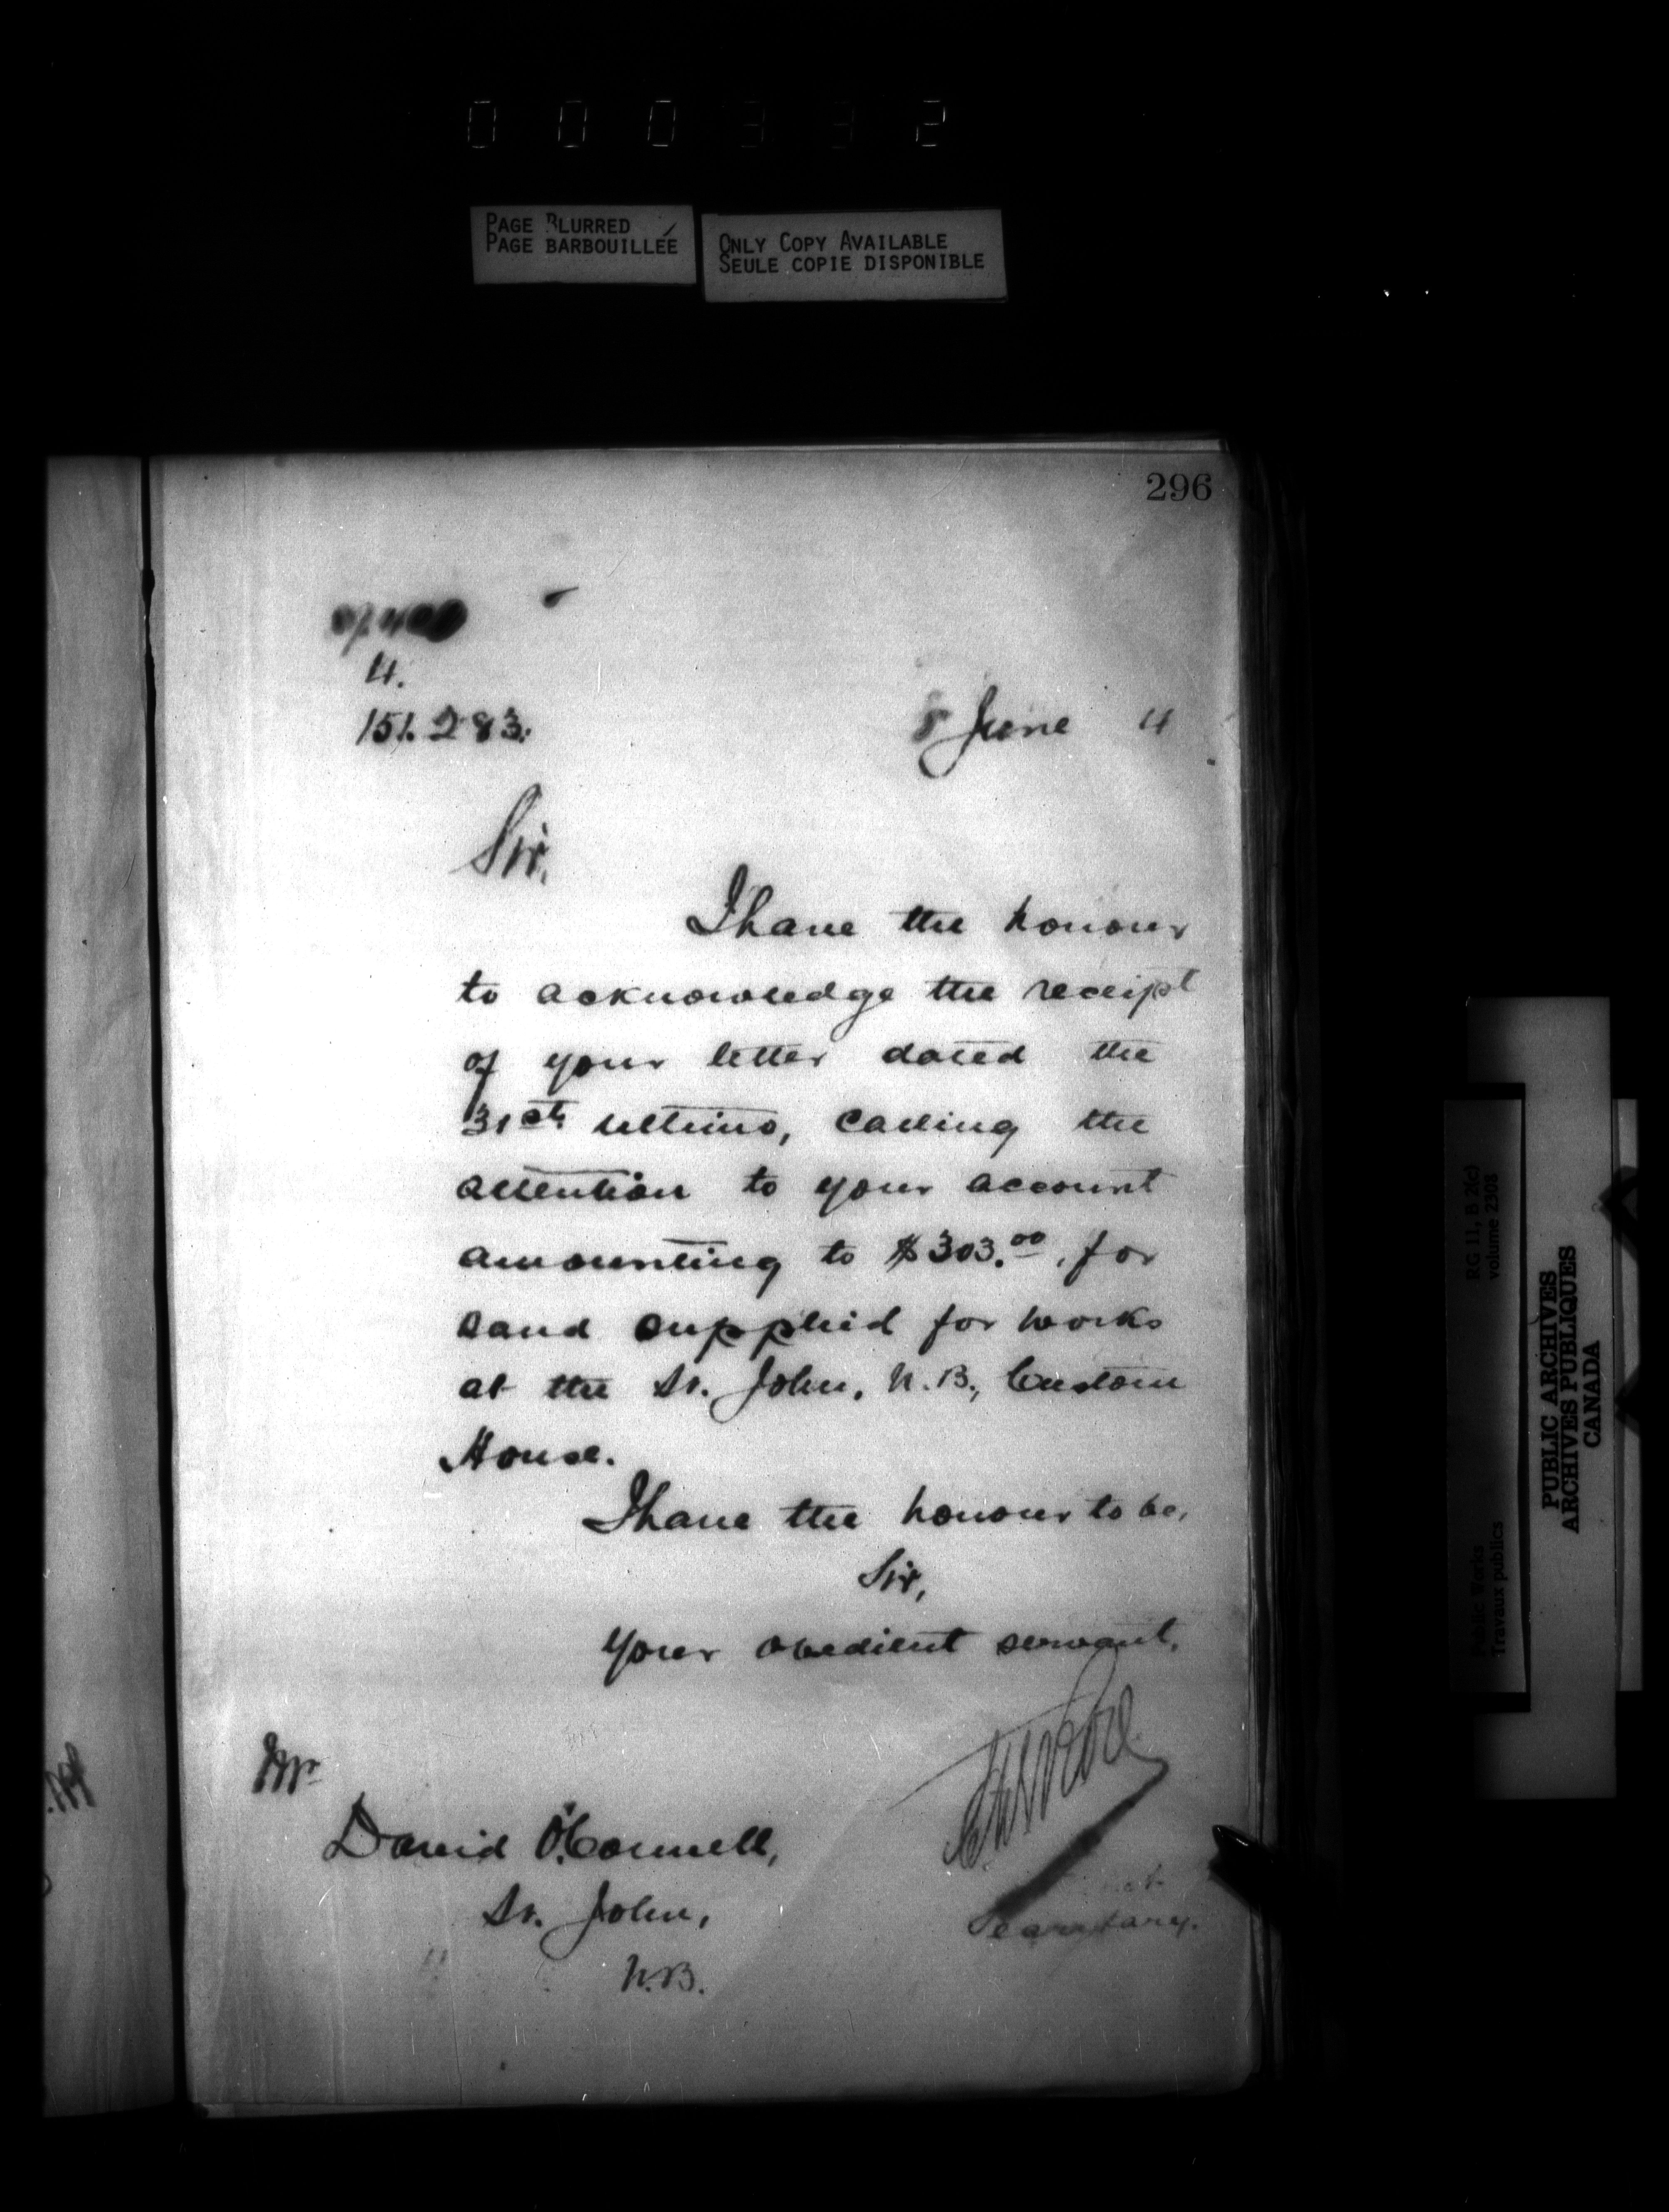 000332
PAGE BLURRED
PAGE BARBOUILLÉE
ONLY COPY AVAILABLE
SEULE COPIE DISPONIBLE
296
4.
151.283.
8 June 4
Sir,
I have the honour
to acknowledge the receipt
of your letter dated the
31st ultimo, calling the
attention to your account
amounting to $303.00, for
sand supplied for works
at the St. John, N.B., Custom
House.
I have the honour to be,
Sir,
Your obedient servant,
Secretary.
Mr
David O'Connell,
St. John,
N.B.
RG 11, B 2(c)
volume 2308
Public Works
Travaux publics
PUBLIC ARCHIVES
ARCHIVES PUBLIQUES
CANADA